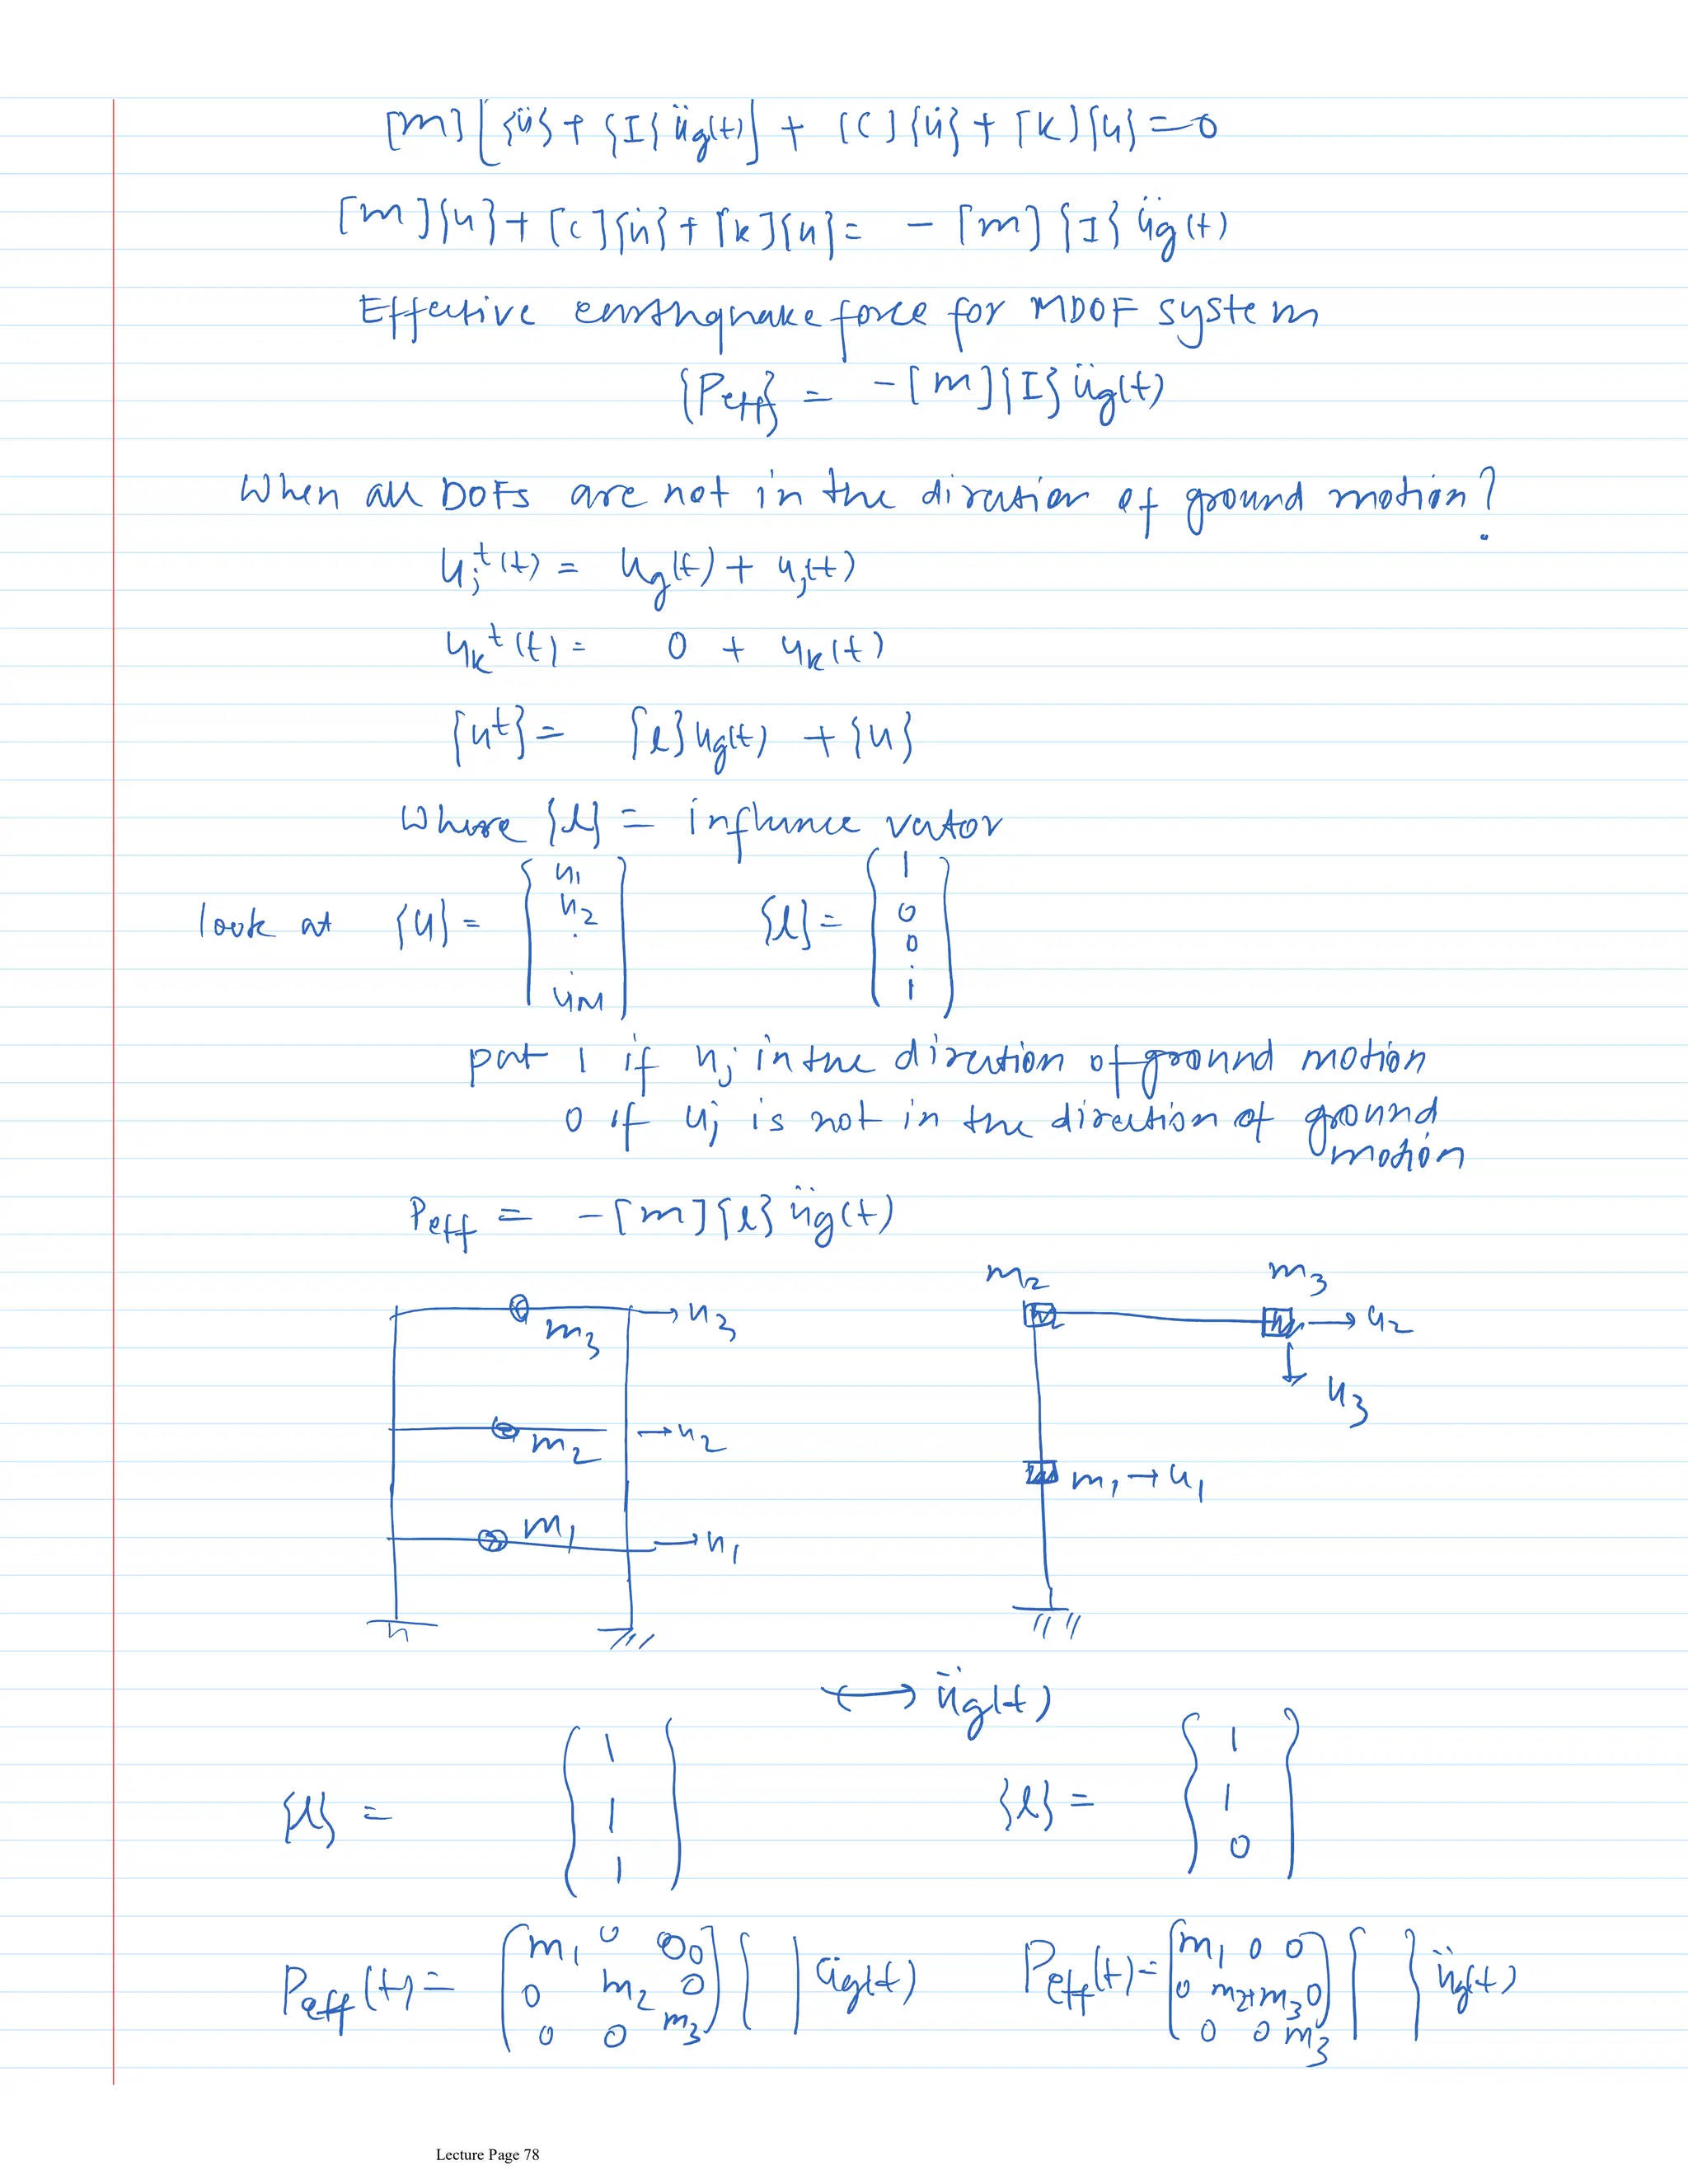 [m][{ü} + {I} üg(t)] + [C]{u̇} + [k]{u} = 0
[m]{u} + [c]{u̇} + [k]{u} = - [m] {I} üg(t)
Effective earthquake force for MDOF system
{Peff} = -[m]{I} üg(t)
When all DOFs are not in the direction of ground motion?
uj^t(t) = ug(t) + uj(t)
uk^t(t) = 0 + uk(t)
{u^t} = {l}ug(t) + {u}
where {l} = influence vector
look at {u} = { u1 u2 . . uN } {l} = { 1 0 0 1 }
put 1 if uj in the direction of ground motion
0 if uj is not in the direction of ground
motion
Peff = -[m]{l} üg(t)
m2 m3
m3 → u3 → u2
u3
m2 → u2
m1 → u1
m1 → u1
↔ üg(t)
{l} = { 1 1 1 } {l} = { 1 1 0 }
Peff(t) = [ m1 0 0 0 m2 0 0 0 m3 ] { } üg(t) Peff(t) = [ m1 0 0 0 m2+m3 0 0 0 m3 ] { } üg(t)
Lecture Page 78